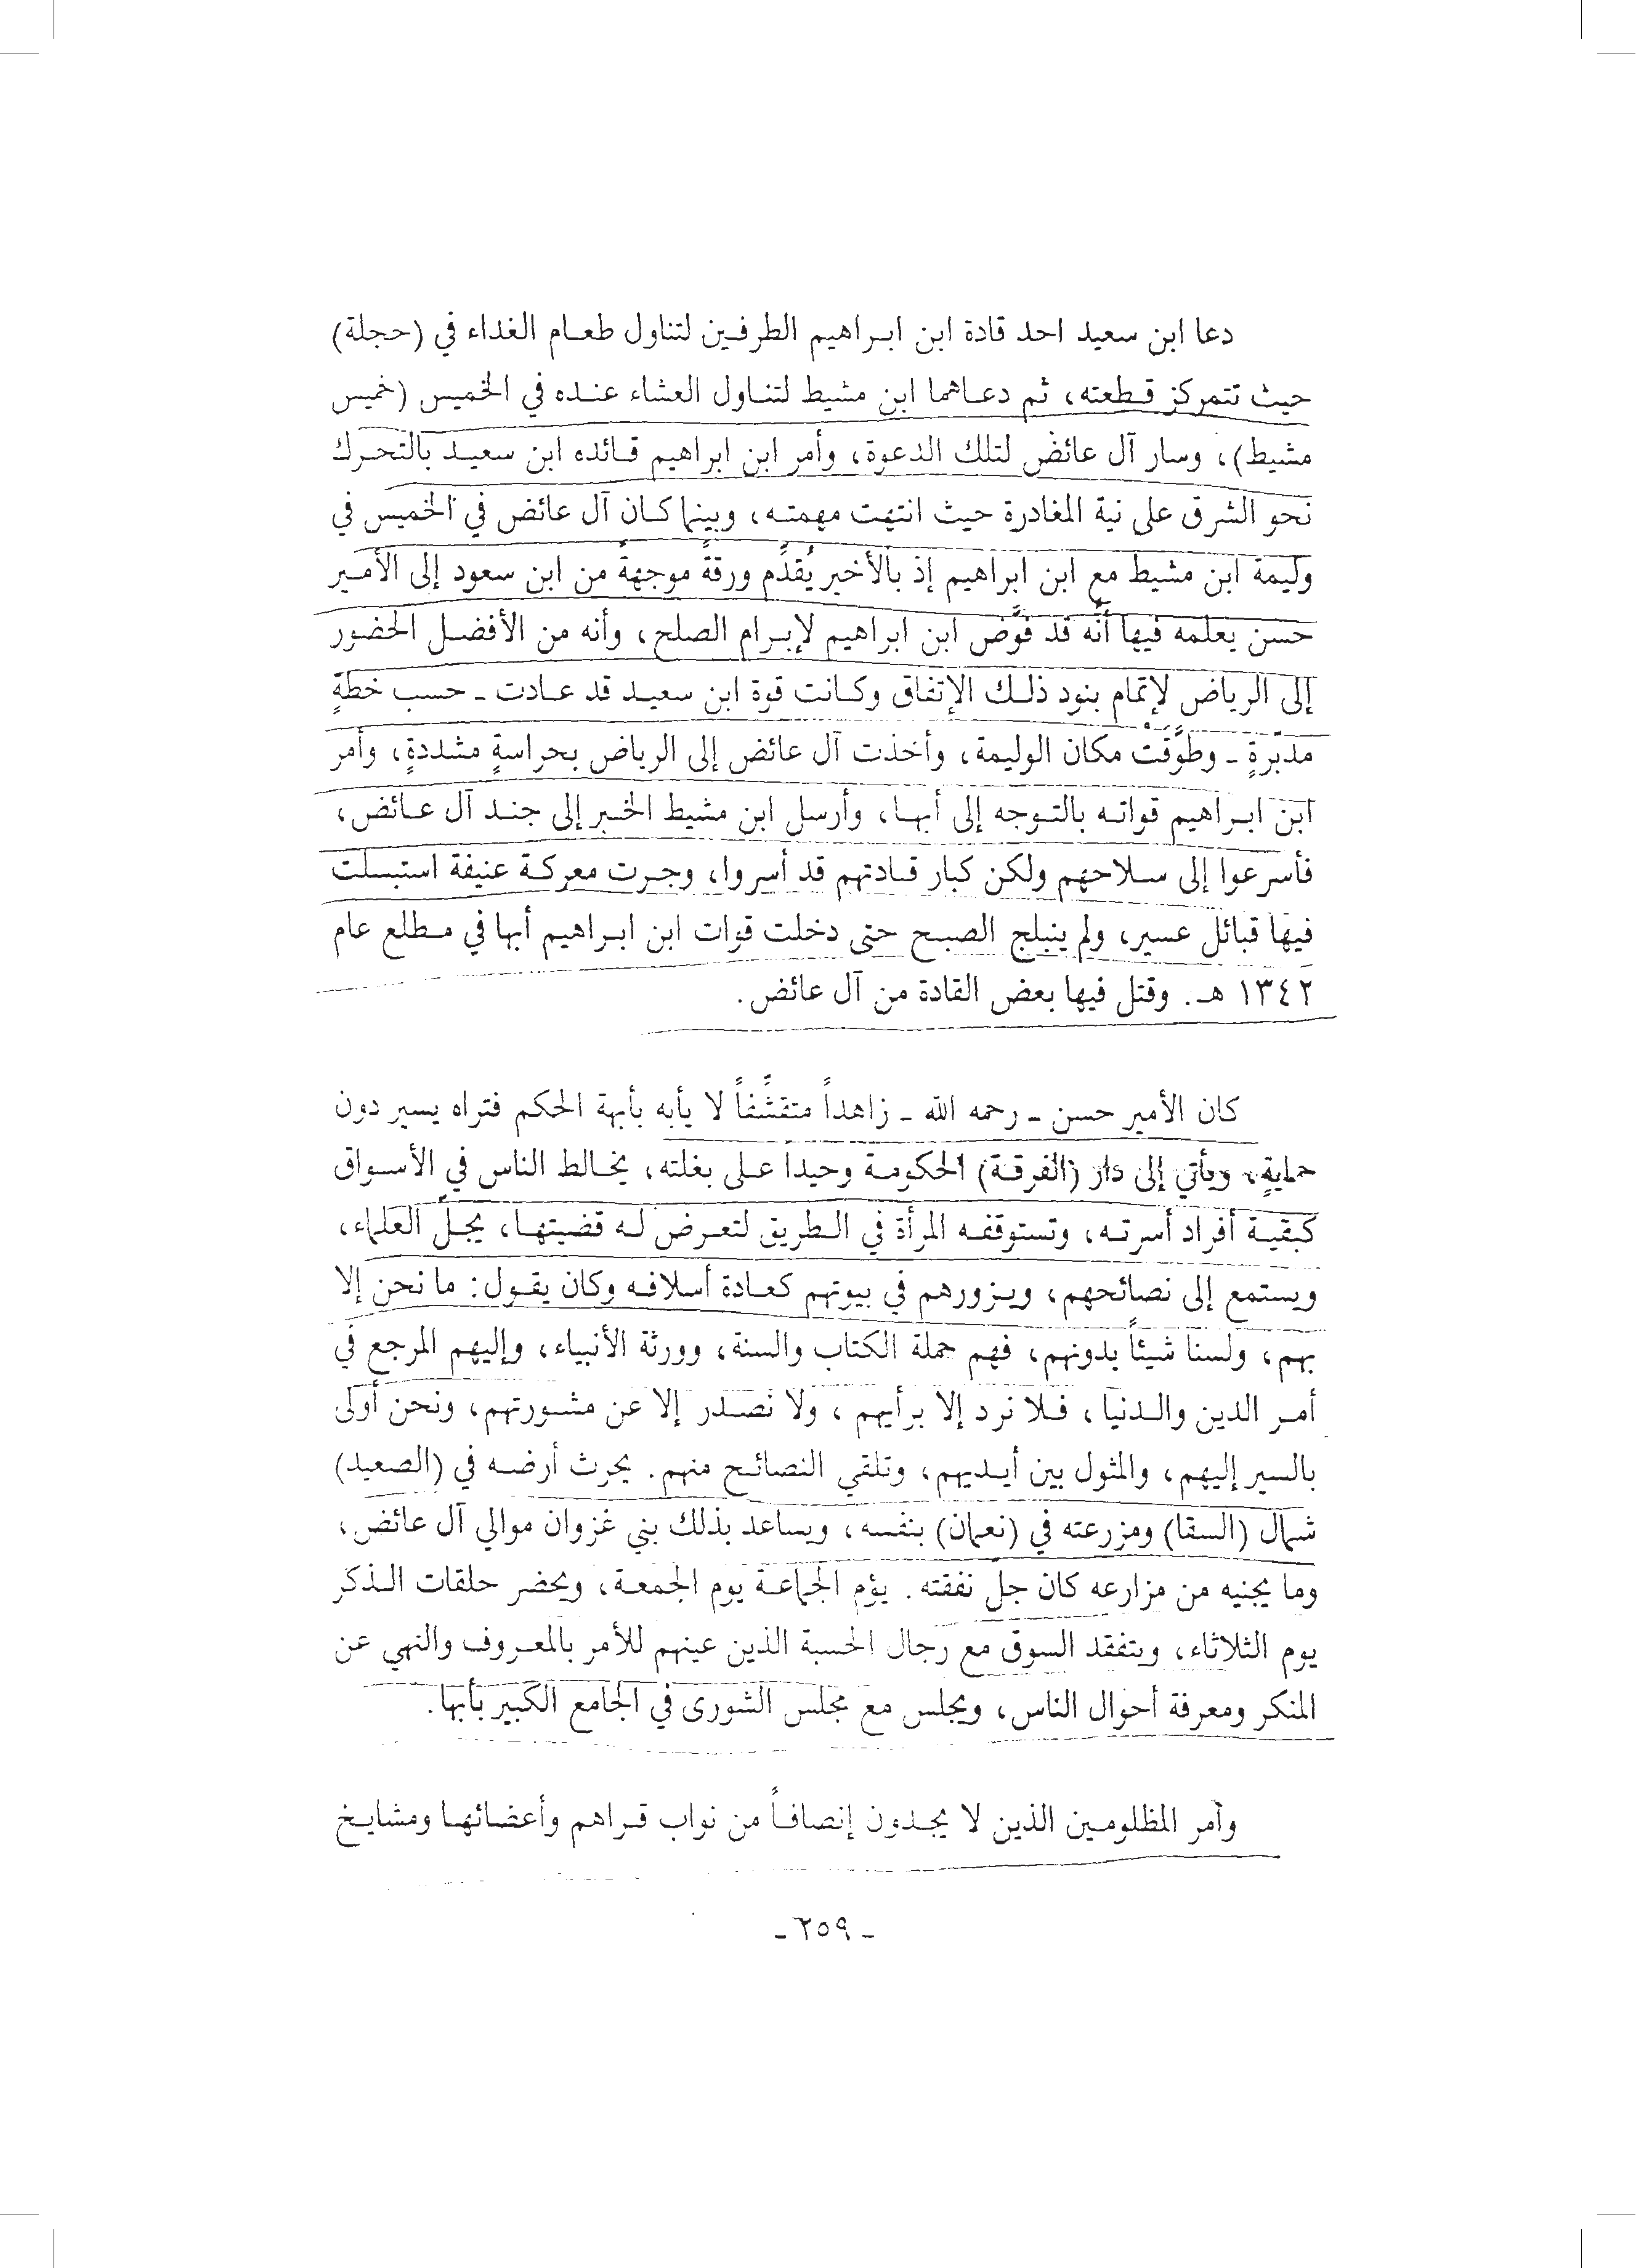 دعا ابن سعيد احد قادة ابن ابراهيم الطرفين لتناول طعام الغداء في (حجلة)
حيث تتمركز قطعته، ثم دعاهما ابن مشيط لتناول العشاء عنده في الخميس (خميس
مشيط)، وسار آل عائض لتلك الدعوة، وأمر ابن ابراهيم قائده ابن سعيد بالتحرك
نحو الشرق على نية المغادرة حيث انتهت مهمته، وبينما كان آل عائض في الخميس في
وليمة ابن مشيط مع ابن ابراهيم إذ بالأخير يُقدِّم ورقةً موجهةً من ابن سعود إلى الأمير
حسن يعلمه فيها أنَّه قد فوَّض ابن ابراهيم لإبرام الصلح، وأنه من الأفضل الحضور
إلى الرياض لإتمام بنود ذلك الإتفاق وكانت قوة ابن سعيد قد عادت - حسب خطةٍ
مدبّرةٍ - وطوَّقَتْ مكان الوليمة، وأخذت آل عائض إلى الرياض بحراسةٍ مشددةٍ، وأمر
ابن ابراهيم قواته بالتوجه إلى أبها، وأرسل ابن مشيط الخبر إلى جند آل عائض،
فأسرعوا إلى سلاحهم ولكن كبار قادتهم قد أسروا، وجرت معركة عنيفة استبسلت
فيها قبائل عسير، ولم ينبلج الصبح حتى دخلت قوات ابن ابراهيم أبها في مطلع عام
١٣٤٢ هـ. وقتل فيها بعض القادة من آل عائض.
كان الأمير حسن - رحمه الله - زاهداً متقشِّفاً لا يأبه بأبهة الحكم فتراه يسير دون
حمايةٍ، ويأتي إلى دار (الفرقة) الحكومة وحيداً على بغلته، يخالط الناس في الأسواق
كبقية أفراد أسرته، وتستوقفه المرأة في الطريق لتعرض له قضيتها، يجلّ العلماء،
ويستمع إلى نصائحهم، ويزورهم في بيوتهم كعادة أسلافه وكان يقول: ما نحن إلا
بهم، ولسنا شيئاً بدونهم، فهم حملة الكتاب والسنة، وورثة الأنبياء، وإليهم المرجع في
أمر الدين والدنيا، فلا نرد إلا برأيهم، ولا نصدر إلا عن مشورتهم، ونحن أولى
بالسير إليهم، والمثول بين أيديهم، وتلقي النصائح منهم. يحرث أرضه في (الصعيد)
شمال (السقا) ومزرعته في (نعمان) بنفسه، ويساعد بذلك بني غزوان موالي آل عائض،
وما يجنيه من مزارعه كان جل نفقته. يؤم الجماعة يوم الجمعة، ويحضر حلقات الذكر
يوم الثلاثاء، ويتفقد السوق مع رجال الحسبة الذين عينهم للأمر بالمعروف والنهي عن
المنكر ومعرفة أحوال الناس، ويجلس مع مجلس الشورى في الجامع الكبير بأبها.
وأمر المظلومين الذين لا يجدون إنصافاً من نواب قراهم وأعضائها ومشايخ
- ٢٥٩ -